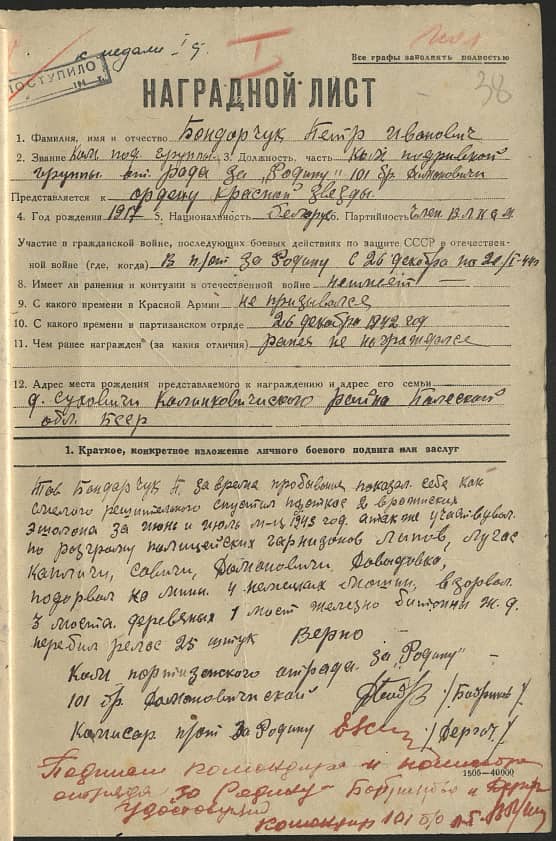 к медали I ст.
ПОСТУПИЛО
I
38
Все графы заполнять полностью
НАГРАДНОЙ ЛИСТ
1. Фамилия, имя и отчество Бондарчук Петр Иванович
2. Звание Ком. под. группы 3. Должность, часть Ком подрывной
группы отряда за „Родину" 101 бр. Домановичи
Представляется к ордену Красной Звезды
4. Год рождения 1917 5. Национальность белорус 6. Партийность Член ВЛКСМ
Участие в гражданской войне, последующих боевых действиях по защите СССР и отечествен-
ной войне (где, когда) В п/от за Родину с 26 декабря по
8. Имеет ли ранения и контузии в отечественной войне не имеет —
9. С какого времени в Красной Армии не призывался
10. С какого времени в партизанском отряде 26 декабря 1942 год
11. Чем ранее награжден (за какие отличия) ранее не награждался
12. Адрес места рождения представляемого к награждению и адрес его семьи
д. Суховичи Калинковичского района Полеской
обл. БССР
1. Краткое, конкретное изложение личного боевого подвига или заслуг
Тов Бондарчук П. за время пребывания показал себя как
смелого решительного спустил под откос 2 вражеских
эшолона за июнь и июль м-ц 1943 год. а так же участвувал
по розгрому полицейских гарнизонов Липов, Лугос
Капличи, Савичи, Домановичи, Давыдовка,
подорвал на мины 4 немецких машин, взорвал
3 моста деревяных 1 мост железно битонны ж.д.
перебил релсс 25 штук Верно
Ком партизанского отряда за „Родину" —
101 бр. Домановичиской
Комисар п/от За Родину
1505—40000
Подписи командира и комисара
отряда за Родину — и
удостоверяю
командир 101 бр